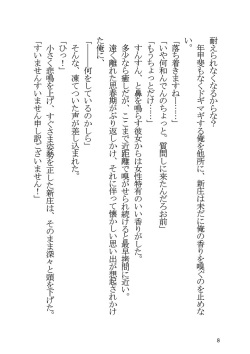 耐えられなくなるからな？
　年甲斐もなくドギマギする俺を他所に、新庄は未だに俺の香りを嗅ぐのを止めな
い。
「落ち着きますね……」
「いや何和んでんのちょっと、質問しに来たんだろお前」
「もうちょっとだけ……」
　すんすん、と鼻を鳴らす彼女からは女性特有のいい香りがした。
　多少なら癒しだが、ここまで近距離で嗅がせられ続けると最早拷問に近い。
　遠く離れた思春期がぶり返しかけ、それに伴って懐かしい思い出が想起されかけ
た俺に、
「――何をしているのかしら」
　そんな、凍てついた声が差し込まれた。
「ひっ！」
　小さく悲鳴を上げ、すぐさま姿勢を正した新庄は、そのまま深々と頭を下げた。
「すいませんすいません申し訳ございません！」
8